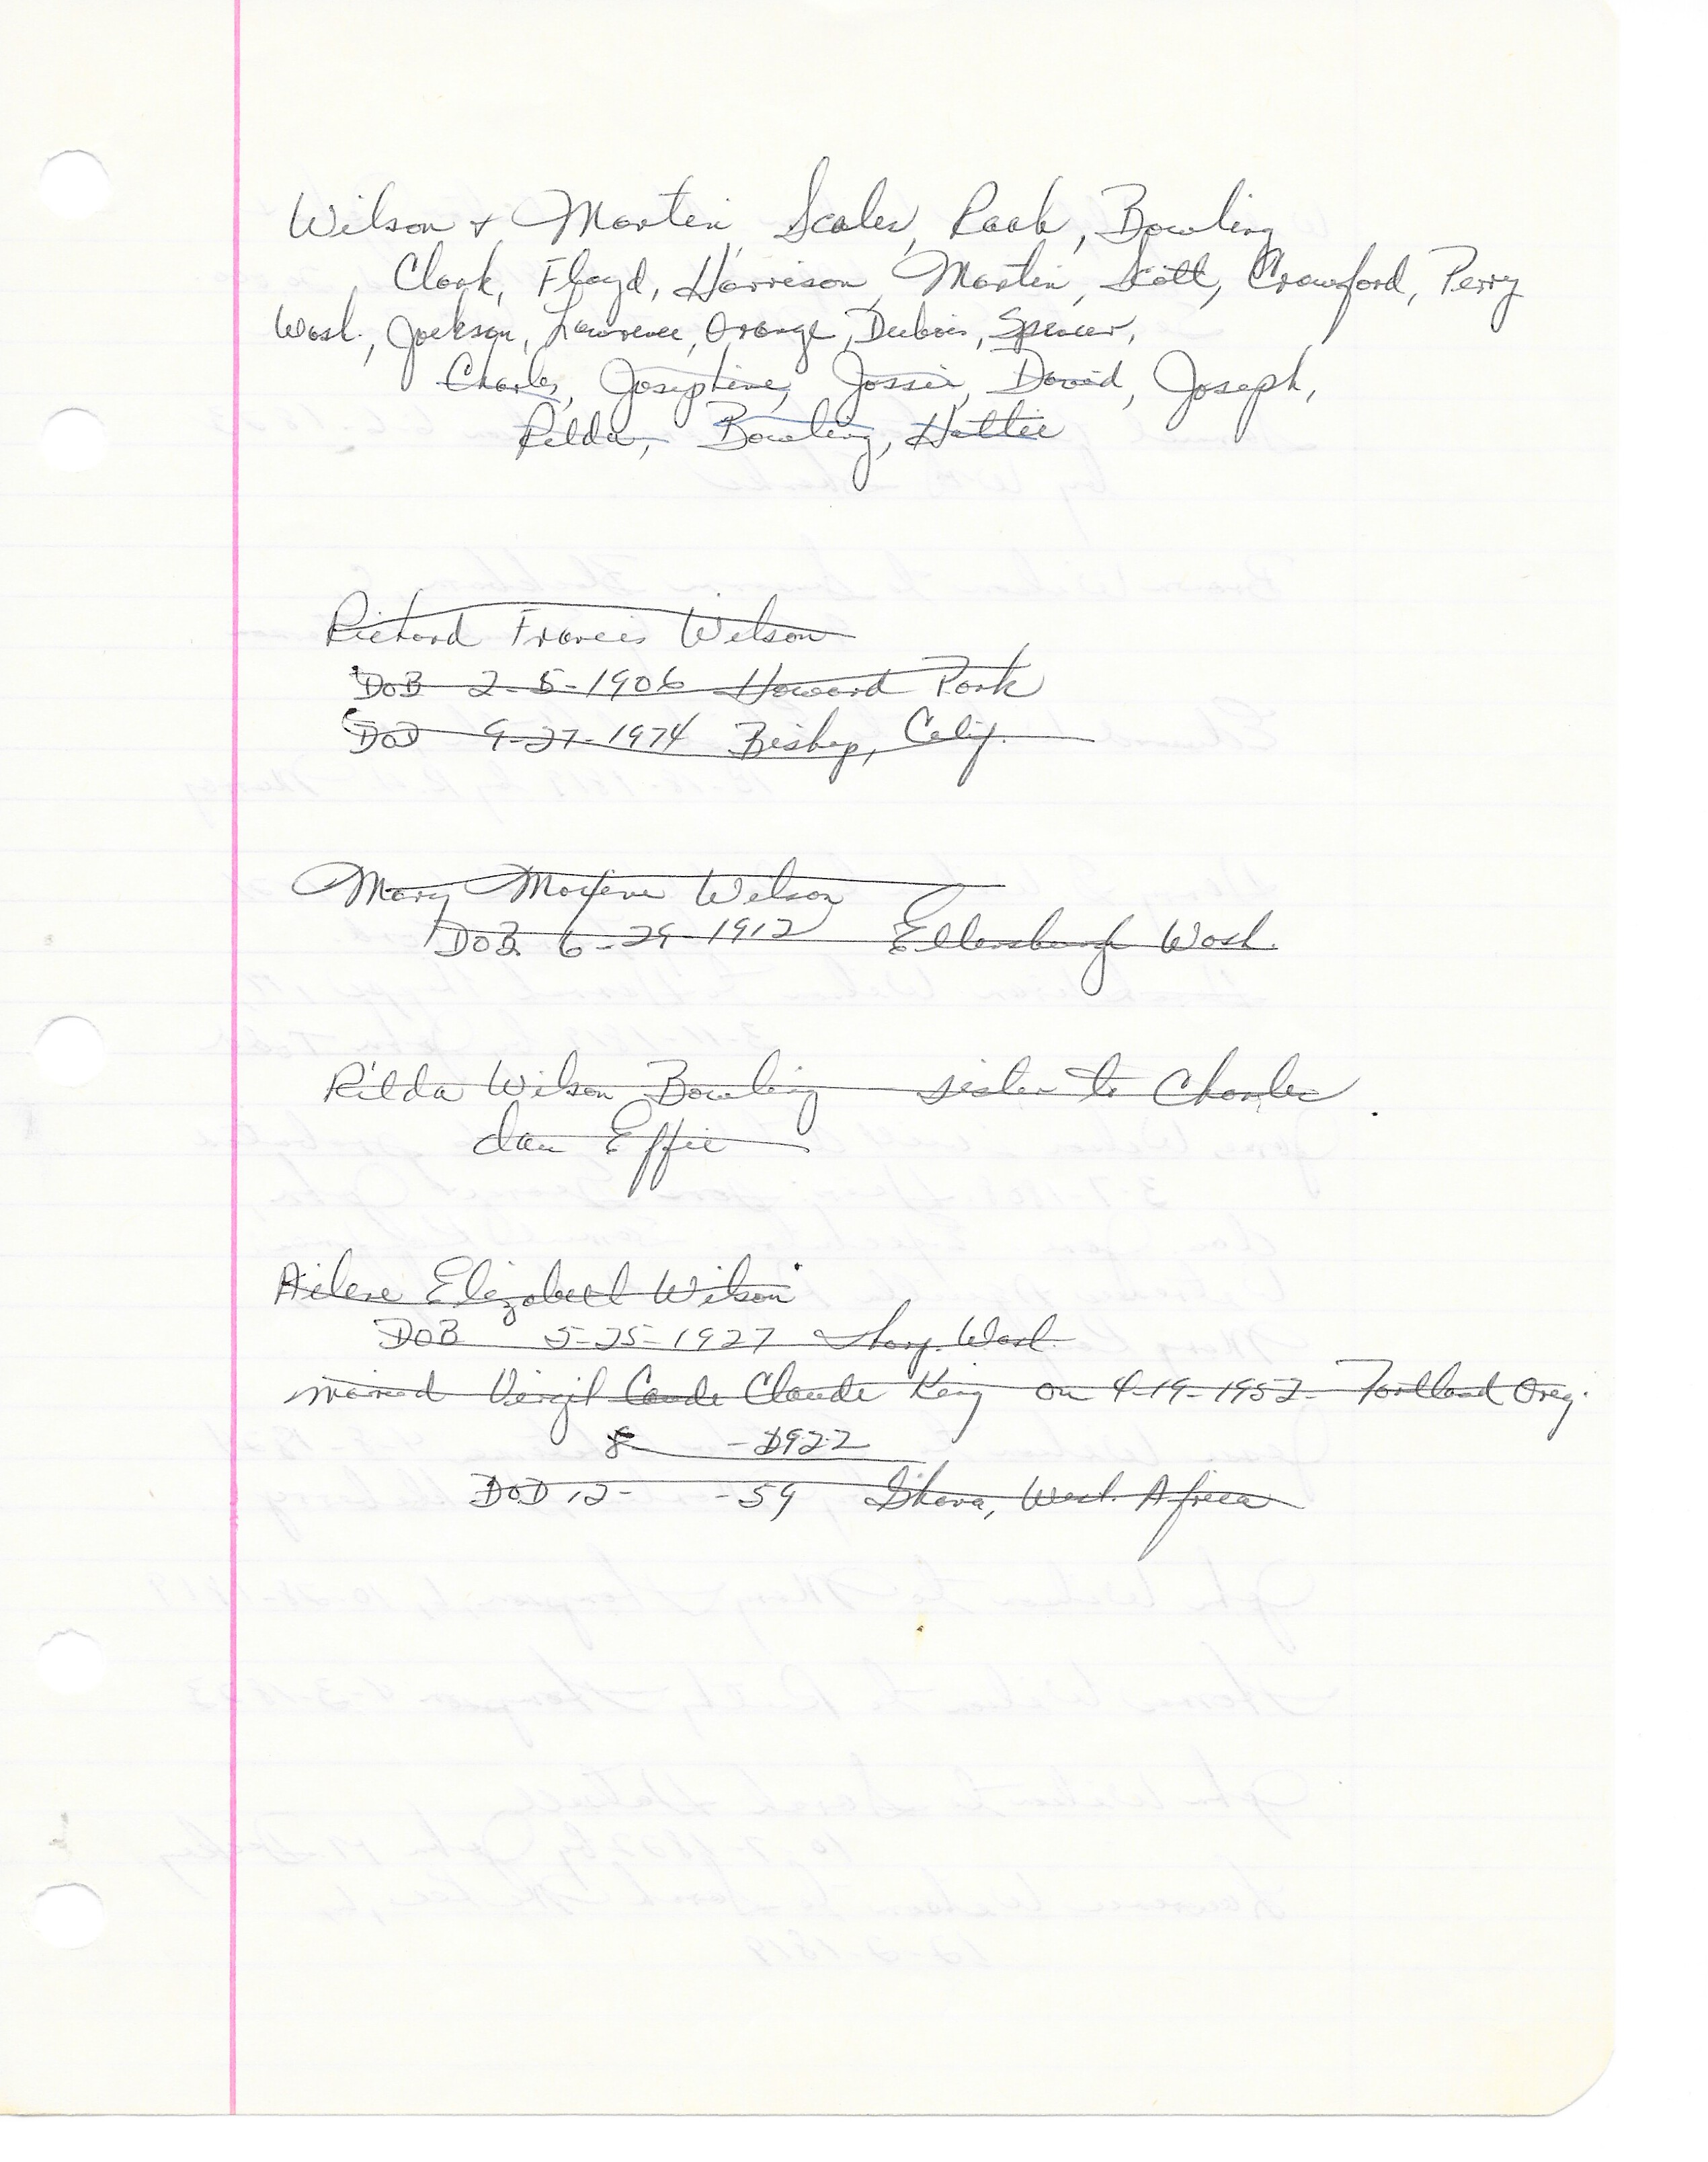 Wilson & Martin, Scales, Raak, Bowling
Clark, Floyd, Harrison, Martin, Scott, Crawford, Perry
Wash., Jackson, Lawrence, Orange, Dubois, Spencer,
Charles, Josephine, Jossie, David, Joseph,
Rilda, Bowling, Hattie
Richard Francis Wilson
DOB 2-5-1906 Howard Park
DOD 9-27-1974 Bishop, Calif.
Mary Maxine Wilson
DOB 6-29-1912 Ellensburgh Wash.
Rilda Wilson Bowling sister to Charles
dau Effie
Ailene Elizabeth Wilson
DOB 5-25-1927 Wash.
married Virgil Caude Claude King on 4-19-1952 Portland Oreg.
8 - 1922
DOD 12- -59 Ghana, West Africa